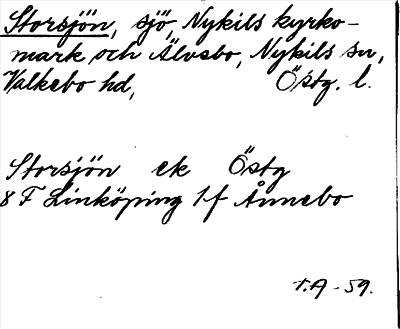 Storsjön, sjö, Nykils kyrko-
mark och Älvsbo, Nykils sn,
Valkebo hd, Östg. l.
Storsjön ek Östg
8 F Linköping 1 f Ånnebo
V.A - 59.